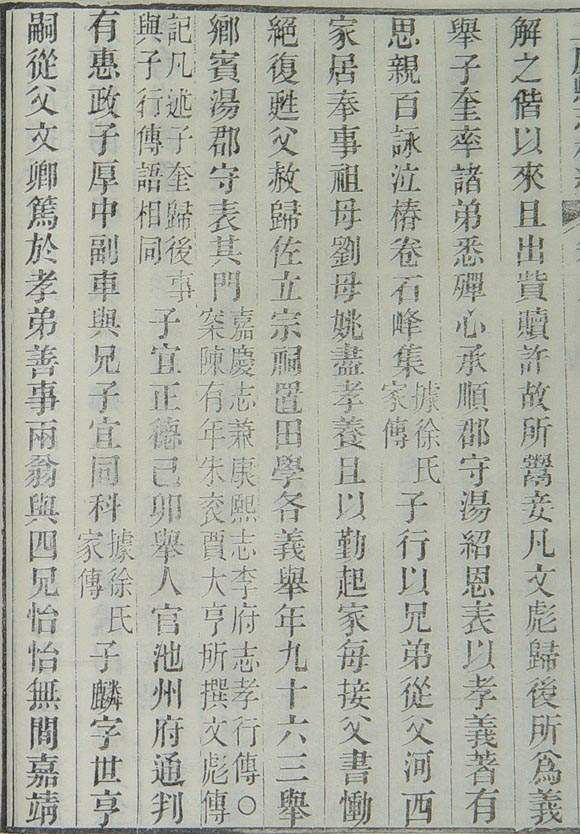 解之偕以來且出貲贖許故所鬻妾凡文彪歸後所爲義
舉子奎率諸弟悉殫心承順郡守湯紹恩表以孝義著有
思親百詠泣椿卷石峰集據徐氏家傳子行以兄弟從父河西
家居奉事祖母劉母姚盡孝養且以勤起家每接父書慟
絕復甦父赦歸佐立宗祠置田學各義舉年九十六三舉
鄉賓湯郡守表其門嘉慶志兼康熙志李府志孝行傳○案陳有年朱袞賈大亨所撰文彪傳
記凡述子奎歸後事與子行傳語相同子宜正德己卯舉人官池州府通判
有惠政子厚中副車與兄子宜同科據徐氏家傳子麟字世亨
嗣從父文卿篤於孝弟善事兩翁與四兄怡怡無間嘉靖